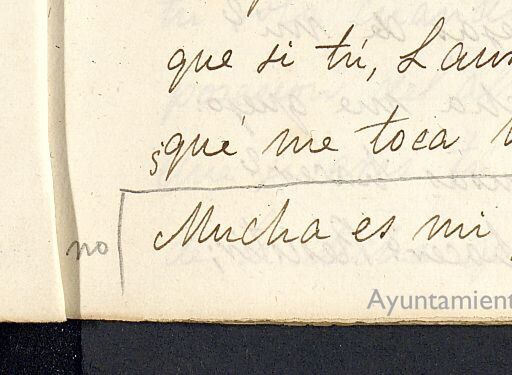 que si tú, Laur
¿qué me toca
Mucha es mi
no
Ayuntamient